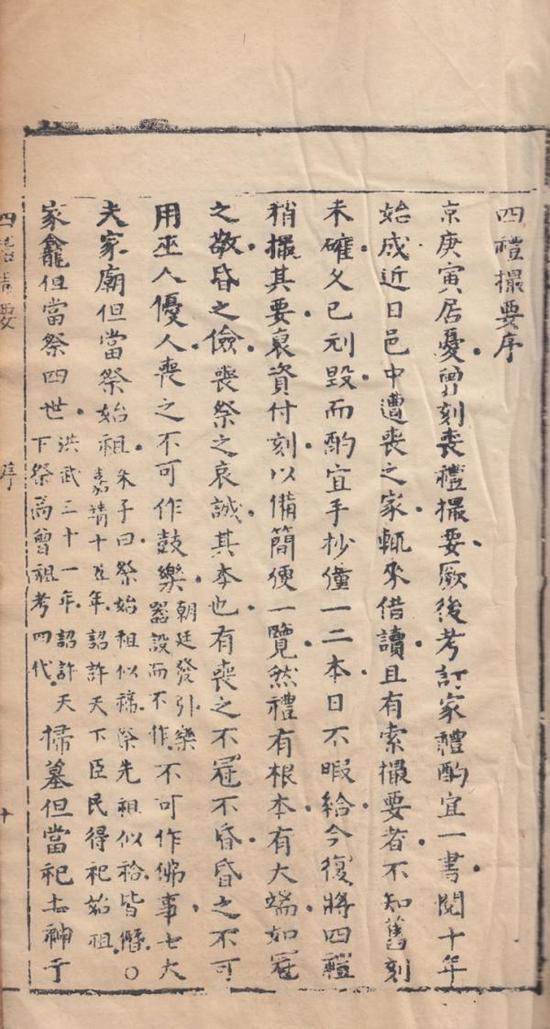 四禮撮要序
京庚寅居憂曾刻喪禮撮要厥後考訂家禮酌宜一書閱十年
始成近日邑中遭喪之家輒來借讀且有索撮要者不知舊刻
未確久已刓毀而酌宜手抄僅一二本日不暇給今復將四禮
稍撮其要裒資付刻以備簡便一覽然禮有根本有大端如冠
之敬昏之儉喪祭之哀誠其本也有喪之不冠不昏昏之不可
用巫人優人喪之不可作鼓樂朝廷發引樂器設而不作不可作佛事士大
夫家廟但當祭始祖朱子曰祭始祖似禘祭先祖似祫皆僭〇嘉靖十五年詔許天下臣民得祀始祖
家龕但當祭四世洪武三十一年詔許天下祭高曾祖考四代掃墓但當祀土神于
四禮撮要 序 十